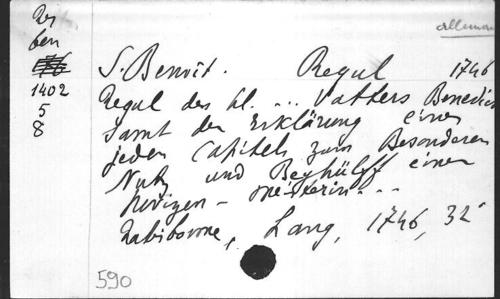 Res
ben
1402
5
8
allemand
S. Benoit. Regul 1746
Regul des hl. ... Vatters Benedicti
samt der Erklärung eines
jeden Capitels zum Besonderen
Nutz und Beyhülff einer
Novizen-Meisterin...
Ratisbonne, Lang, 1746, 32°
590